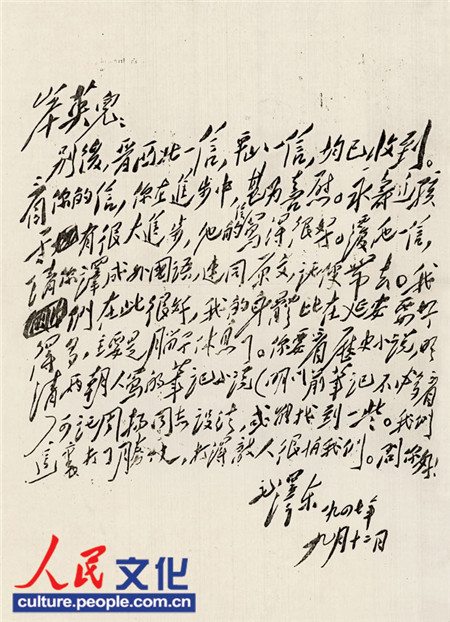 岸英兒：
别後，晋西北一信，平山一信，均已收到。
看你的信，你在進步中，甚為喜慰。永壽這孩
子有很大進步，他的信寫得很好。復他一信，
請你譯成外國語，連同原文，託便帶去。我
們在此很好，我的身體比在延安要好
得多，主要是腦子休息了。你要看歷史小説，明
清兩朝人寫的筆記小説（明以前筆記不必多看
可託周揚同志設法，或能找到一些。我們
這裏打了勝仗，打得敵人很怕我們。問你好
毛澤東
一九四七年
九月十二日
人民文化
culture.people.com.cn